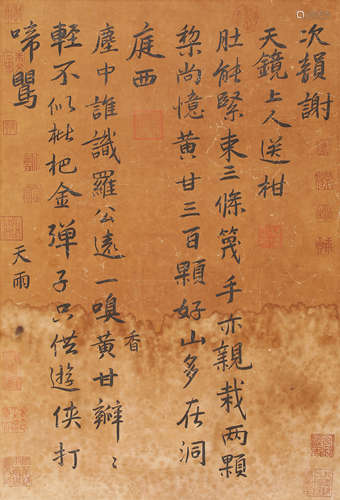 次韻謝
天鏡上人送柑
肚能緊束三條篾手亦親栽兩顆
棃尚憶黃甘三百顆好山多在洞
庭西
塵中誰識羅公遠一嗅黃甘瓣〻香
輕不似枇杷金彈子只供遊俠打
啼鶯
天雨